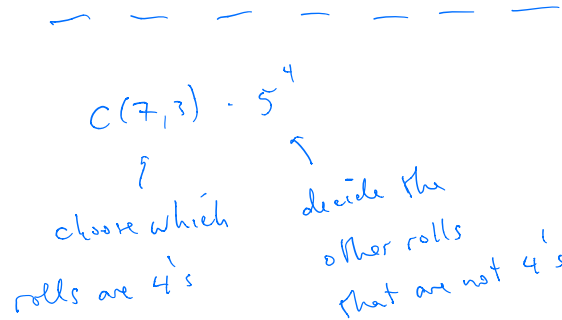 C(7,3) · 5⁴
choose which
rolls are 4's
decide the
other rolls
that are not 4's